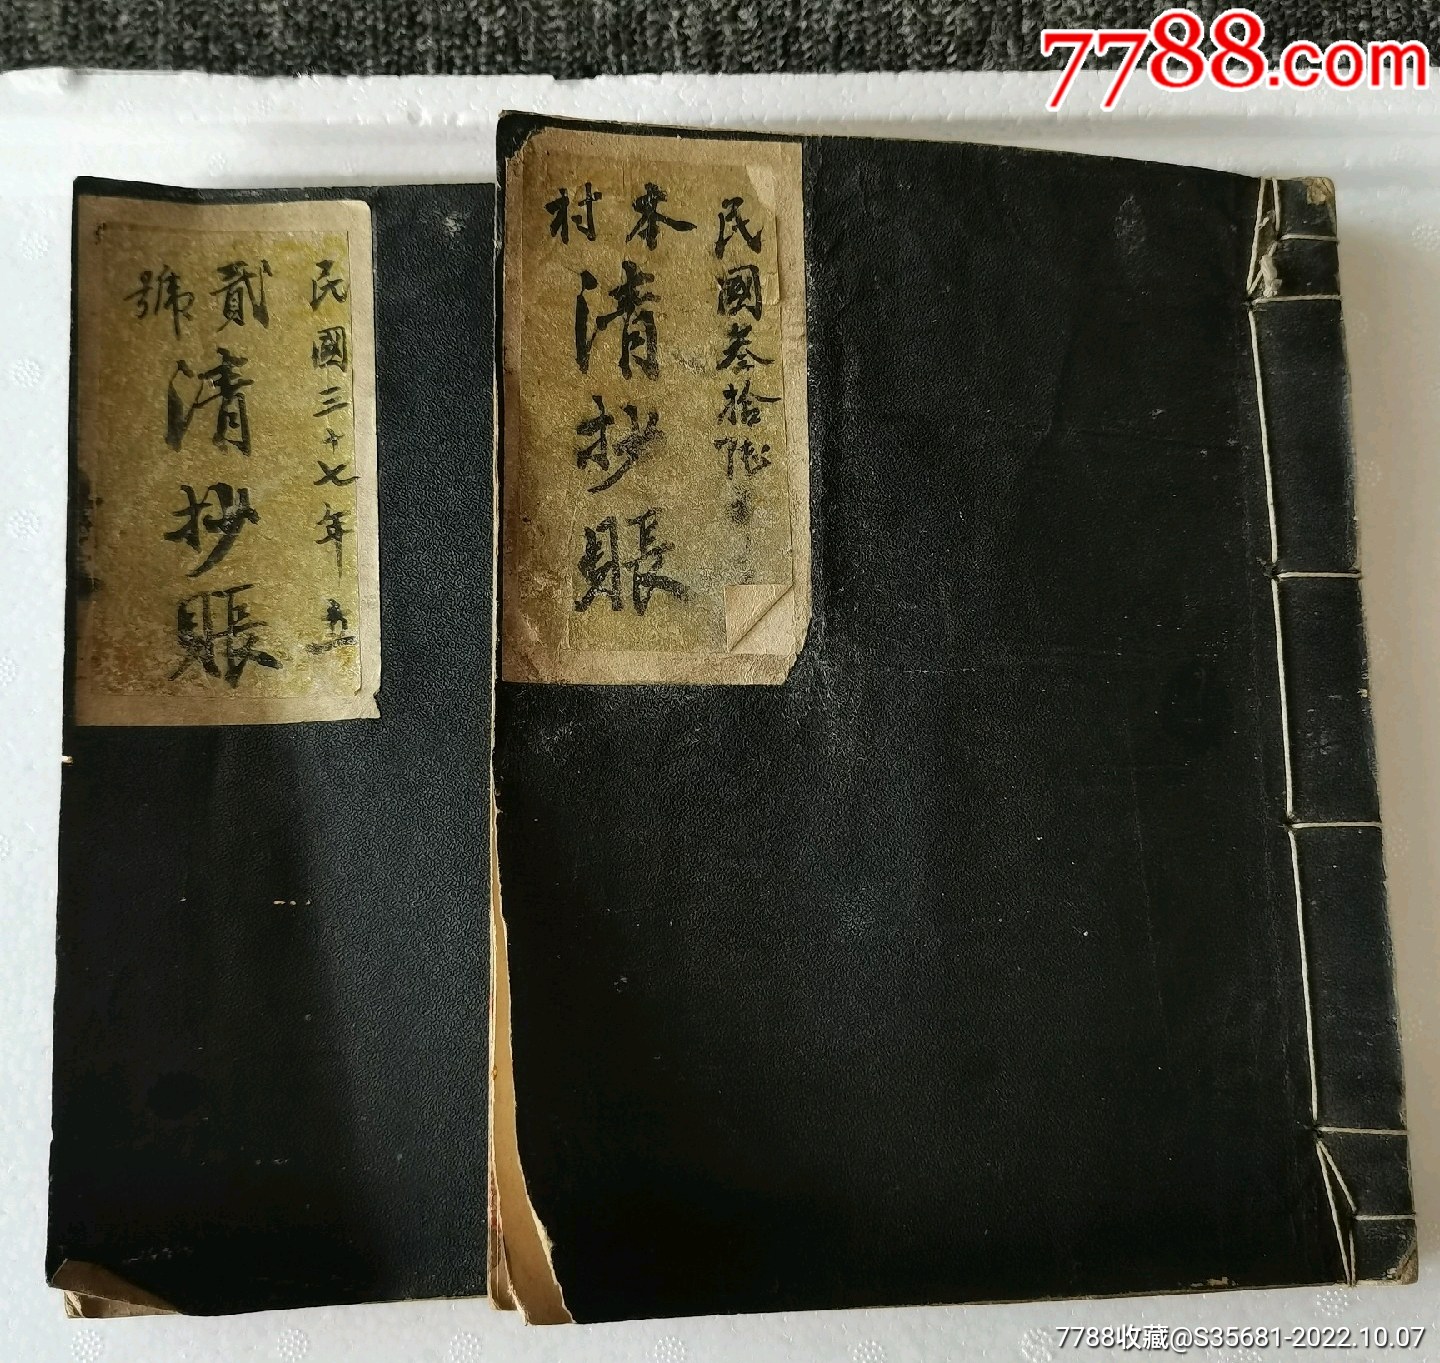 7788.com
民國叁拾陸
本村
清抄賬
民國三十七年 立
貳號
清抄賬
7788收藏@S35681-2022.10.07